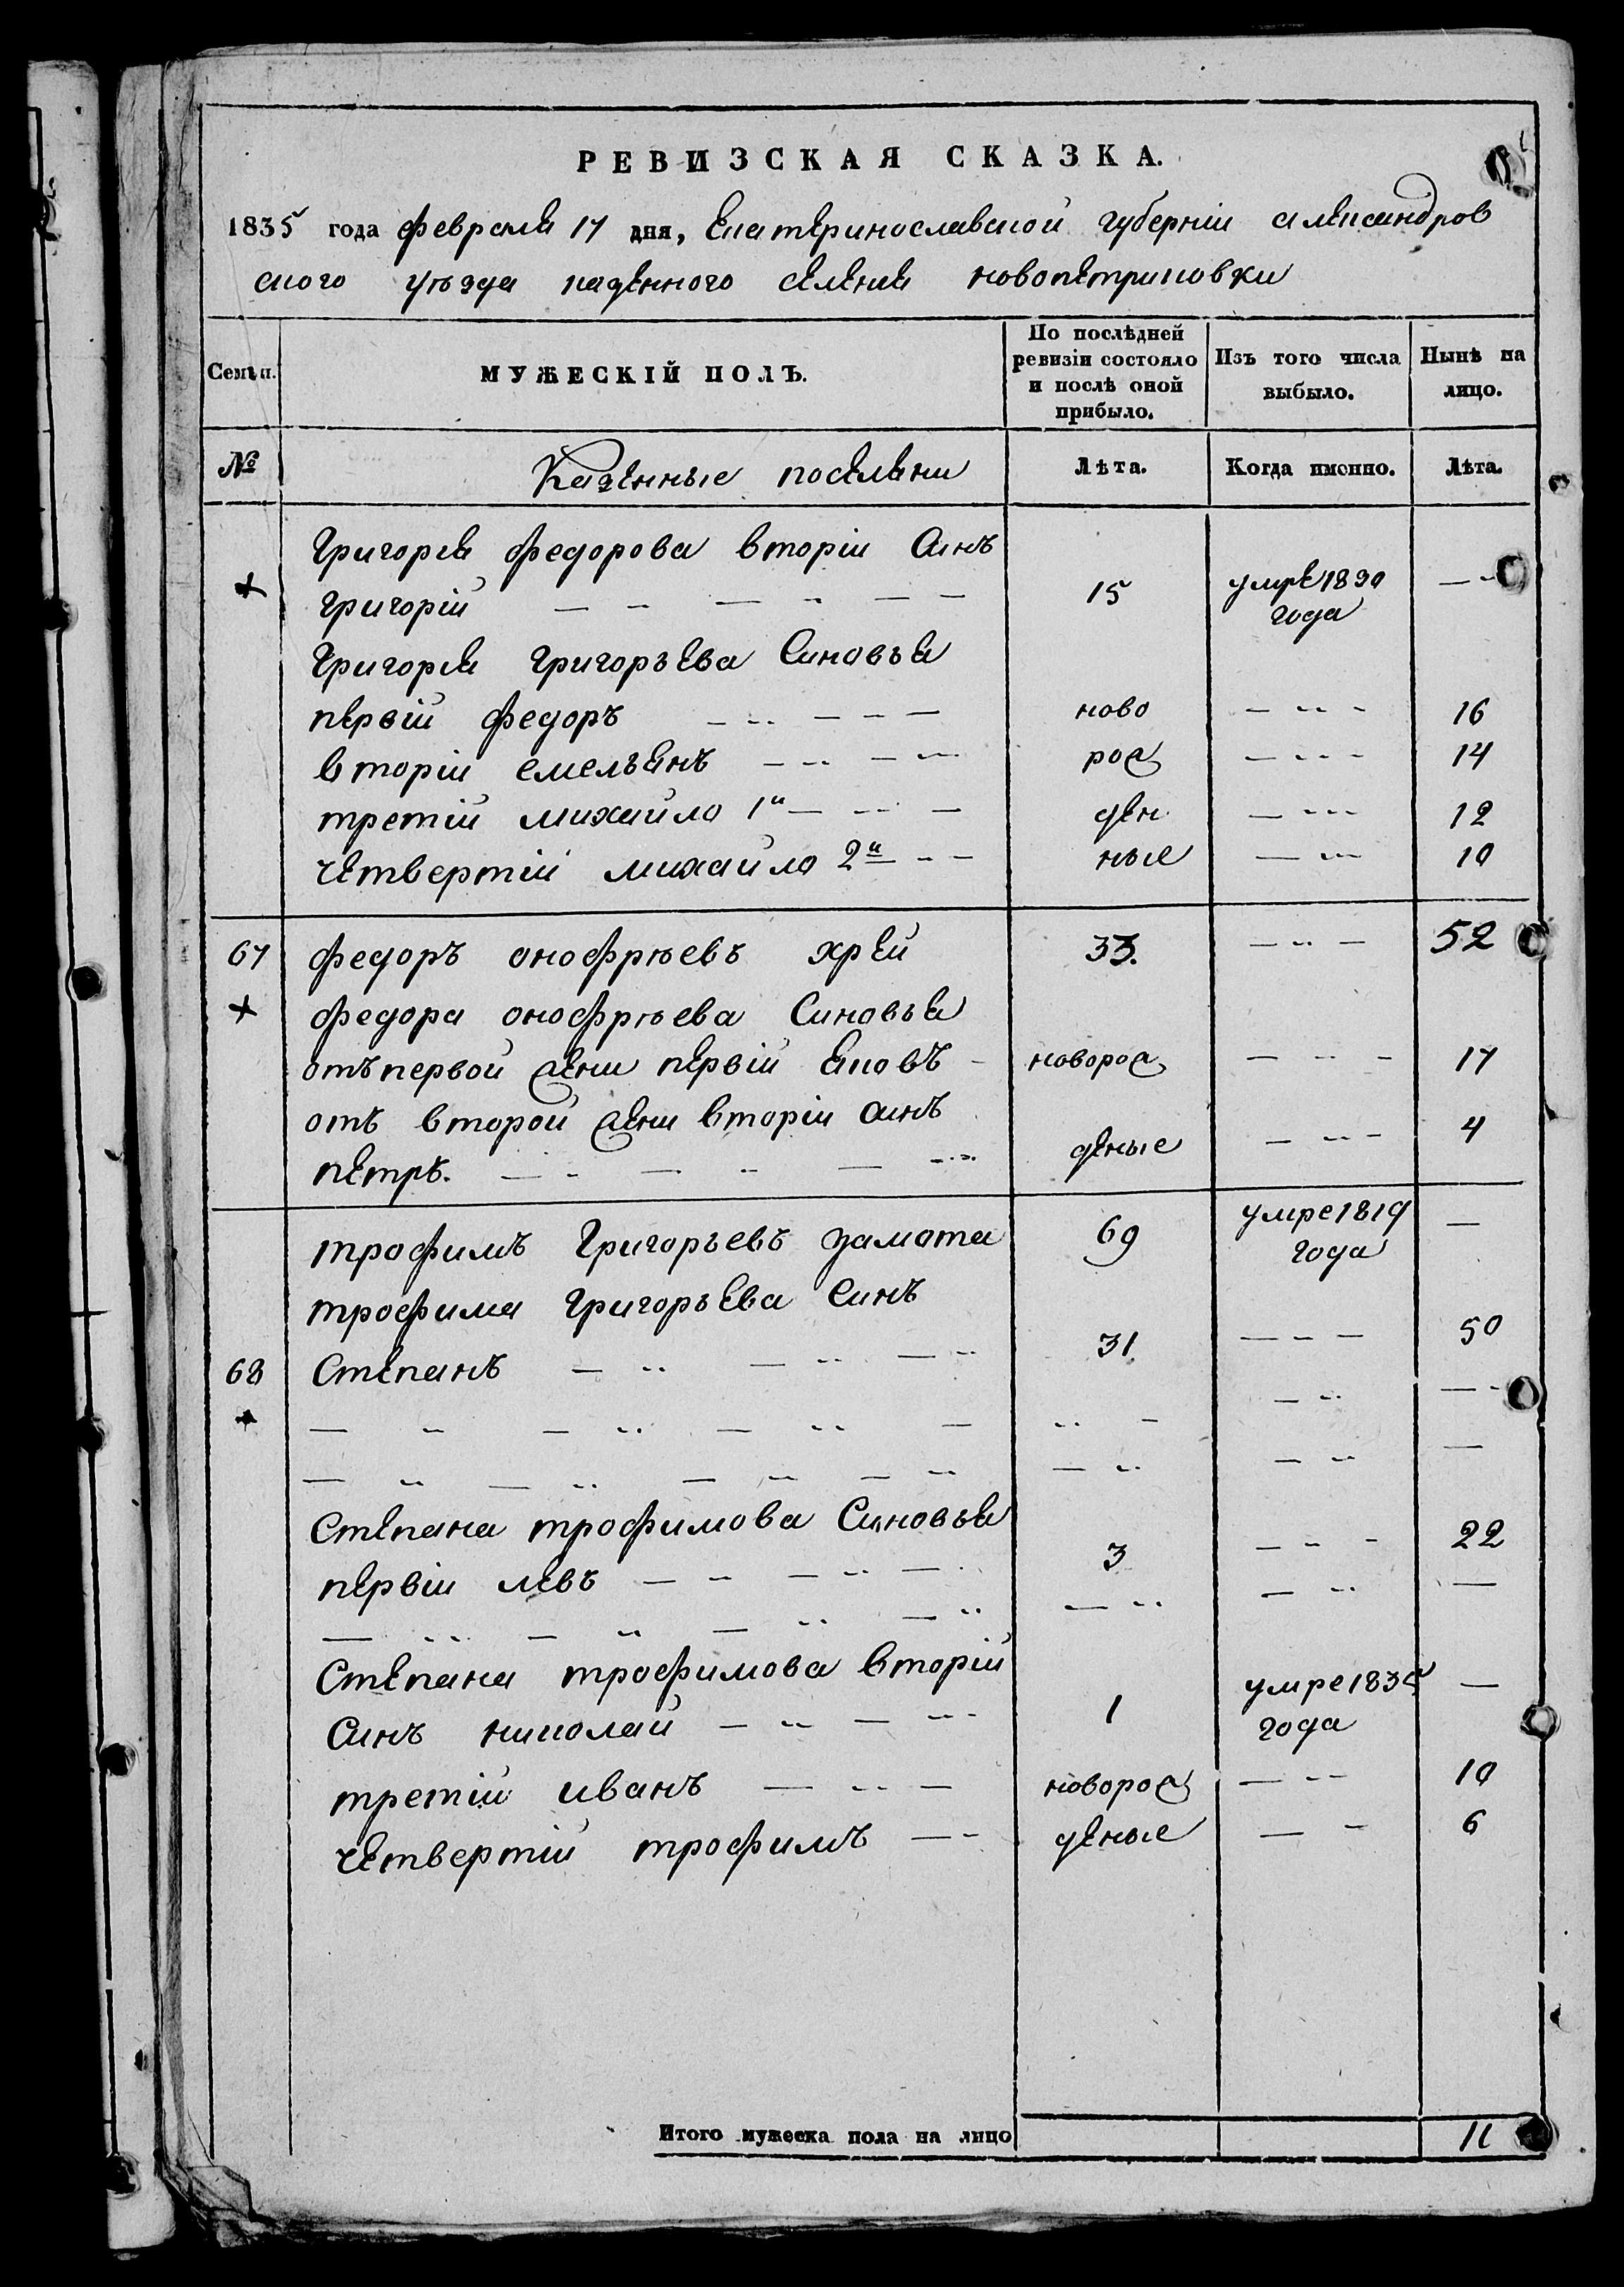 РЕВИЗСКАЯ СКАЗКА.
1835 года февраля 17 дня, Екатеринославской губерніи александров
ского уѣзда казенного селенія новопетриковки
Семьи. МУЖЕСКІЙ ПОЛЪ. По послѣдней ревизіи состояло и послѣ оной прибыло. Изъ того числа выбыло. Нынѣ на лицо.
№ Казенные поселяни Лѣта. Когда именно. Лѣта.
Григорія федорова вторіи Синъ
григорій — — — 15 умре 1830 года —
Григорія григорьева Синовья
первіи федоръ — — — ново — — — 16
вторіи емельянъ — — — рож — — — 14
третіи михайло 1й — — — ден — — — 12
четвертіи михайло 2й — — ные — — 10
67 федоръ онофріевъ хрей 33. — — — 52
федора онофріева Синовья
отъ первой жени первіи яковъ — новорож — — — 17
отъ второй жени вторіи синъ
петръ. — — — — деные — — — 4
трофимъ Григорьевъ замота 69 умре 1819 года —
трофима Григорьева Синъ
68 Степанъ — — — 31 — — — 50
— — — — — — — — — —
— — — — — — — — — —
Степана трофимова Синовья
первіи левъ — — — 3 — — — 22
— — — — — — — — — —
Степана трофимова вторіи
Синъ николай — — — 1 умре 1835 года —
третіи иванъ — — — новорож — — 10
четвертіи трофимъ — — деные — — 6
Итого мужеска пола на лицо 11